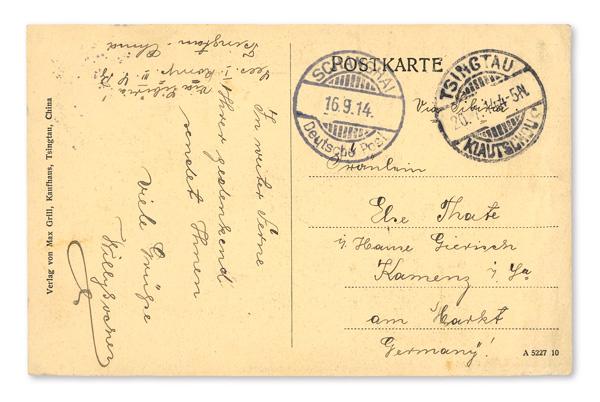 POSTKARTE
SCHANGHAI
16.9.14.
Deutsche Post
TSINGTAU
4-5N.
KIAUTSCHOU
Via Sibiria.
Fräulein
Else Thate
i/ Hause Gierisch
Kamenz i/ Sa
am Markt
Germany!
A 5227 10
Tsingtau - China
III.
Via Sibiria
In weiter Ferne
Ihrer gedenkend
sendet Ihnen
Viele Grüße
Willy
Verlag von Max Grill, Kaufhaus, Tsingtau, China